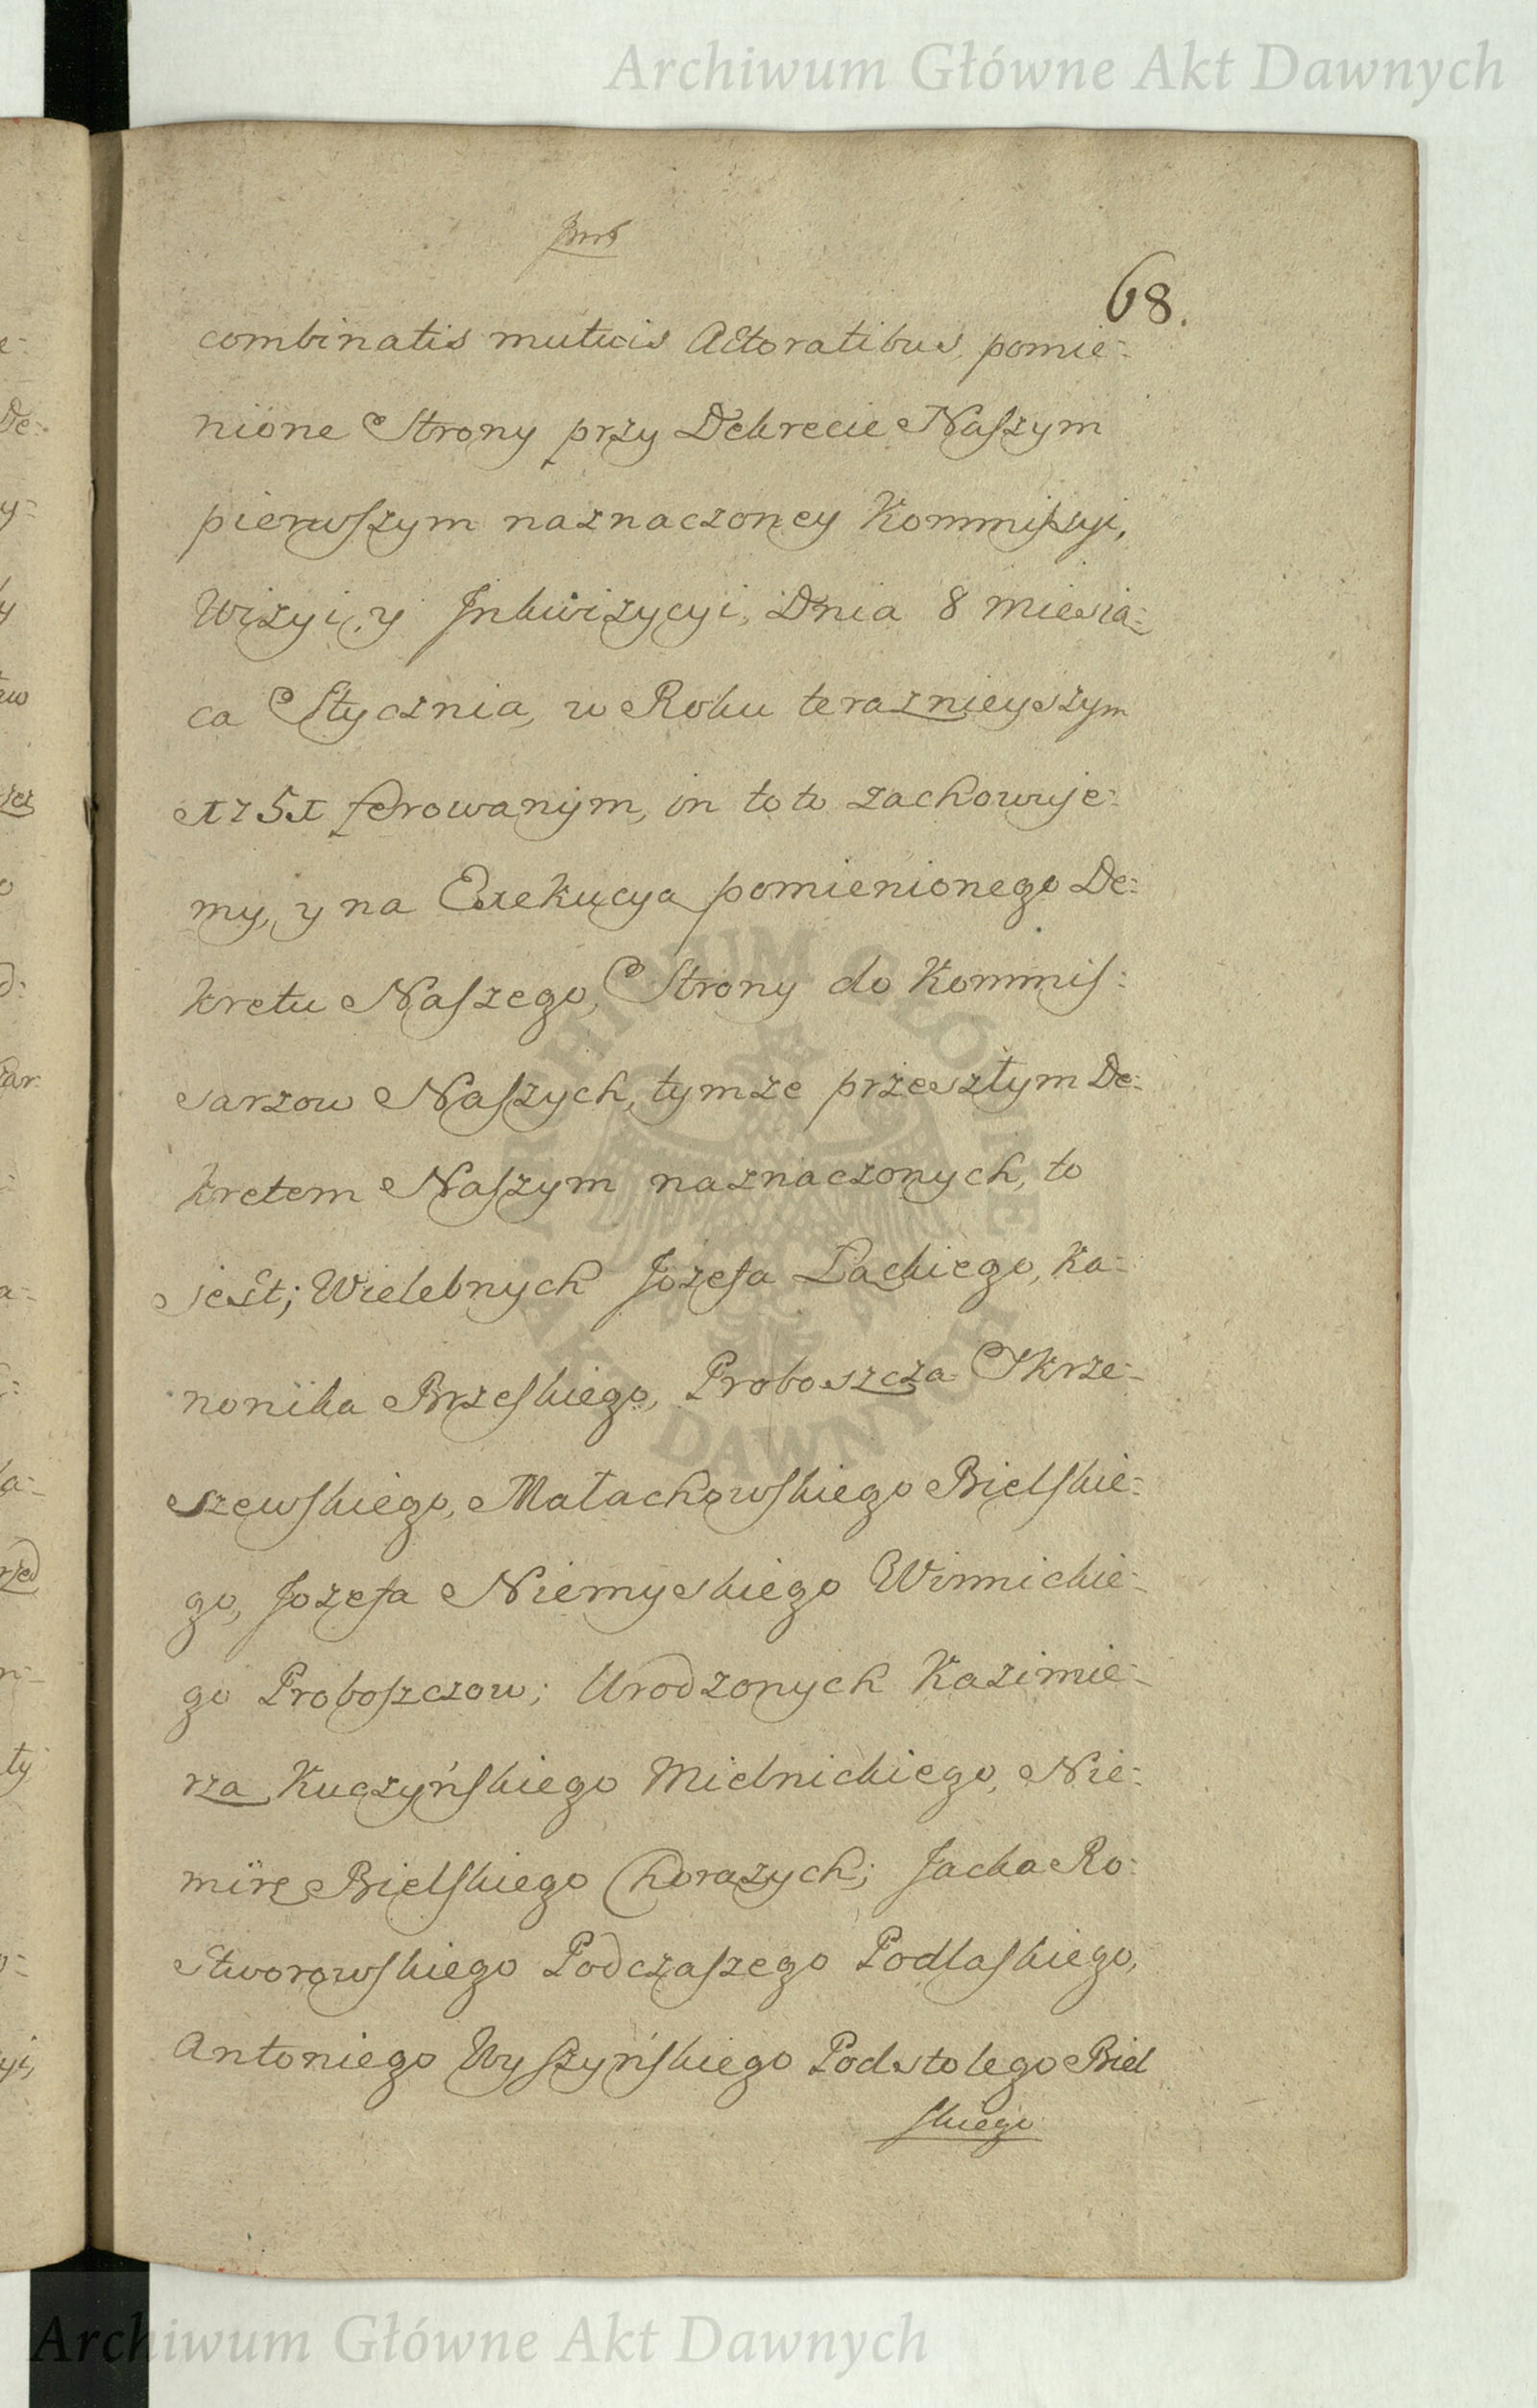 Archiwum Główne Akt Dawnych
68.
combinatis mutuis Actoratibus, pomie:
nione Strony przy Dekrecie Naszym
pierwszym naznaczoney Kommissyi,
Wizyi, y Inkwizycyi, Dnia 8 miesia:
ca Stycznia, w Roku teraznieyszym
1751 ferowanym, in toto zachowuje:
my, y na Exekucya pomienionego De:
kretu Naszego, Strony do Kommis:
sarzow Naszych, tymze przeszłym De:
kretem Naszym naznaczonych, to
jest; Wielebnych Jozefa Lackiego, Ka:
nonika Brzeskiego, Proboszcza Skrze:
szewskiego, Małachowskiego Bielskie:
go, Jozefa Niemyskiego Winnickie:
go Proboszczow; Urodzonych Kazimie:
rza Kuczyńskiego Mielnickiego, Nie:
mirę Bielskiego Chorązych; Jacka Ro:
stworowskiego Podczaszego Podlaskiego,
Antoniego Wyszyńskiego Podstolego Biel
skiego
ARCHIWUM GŁÓWNE AKT DAWNYCH
Archiwum Główne Akt Dawnych